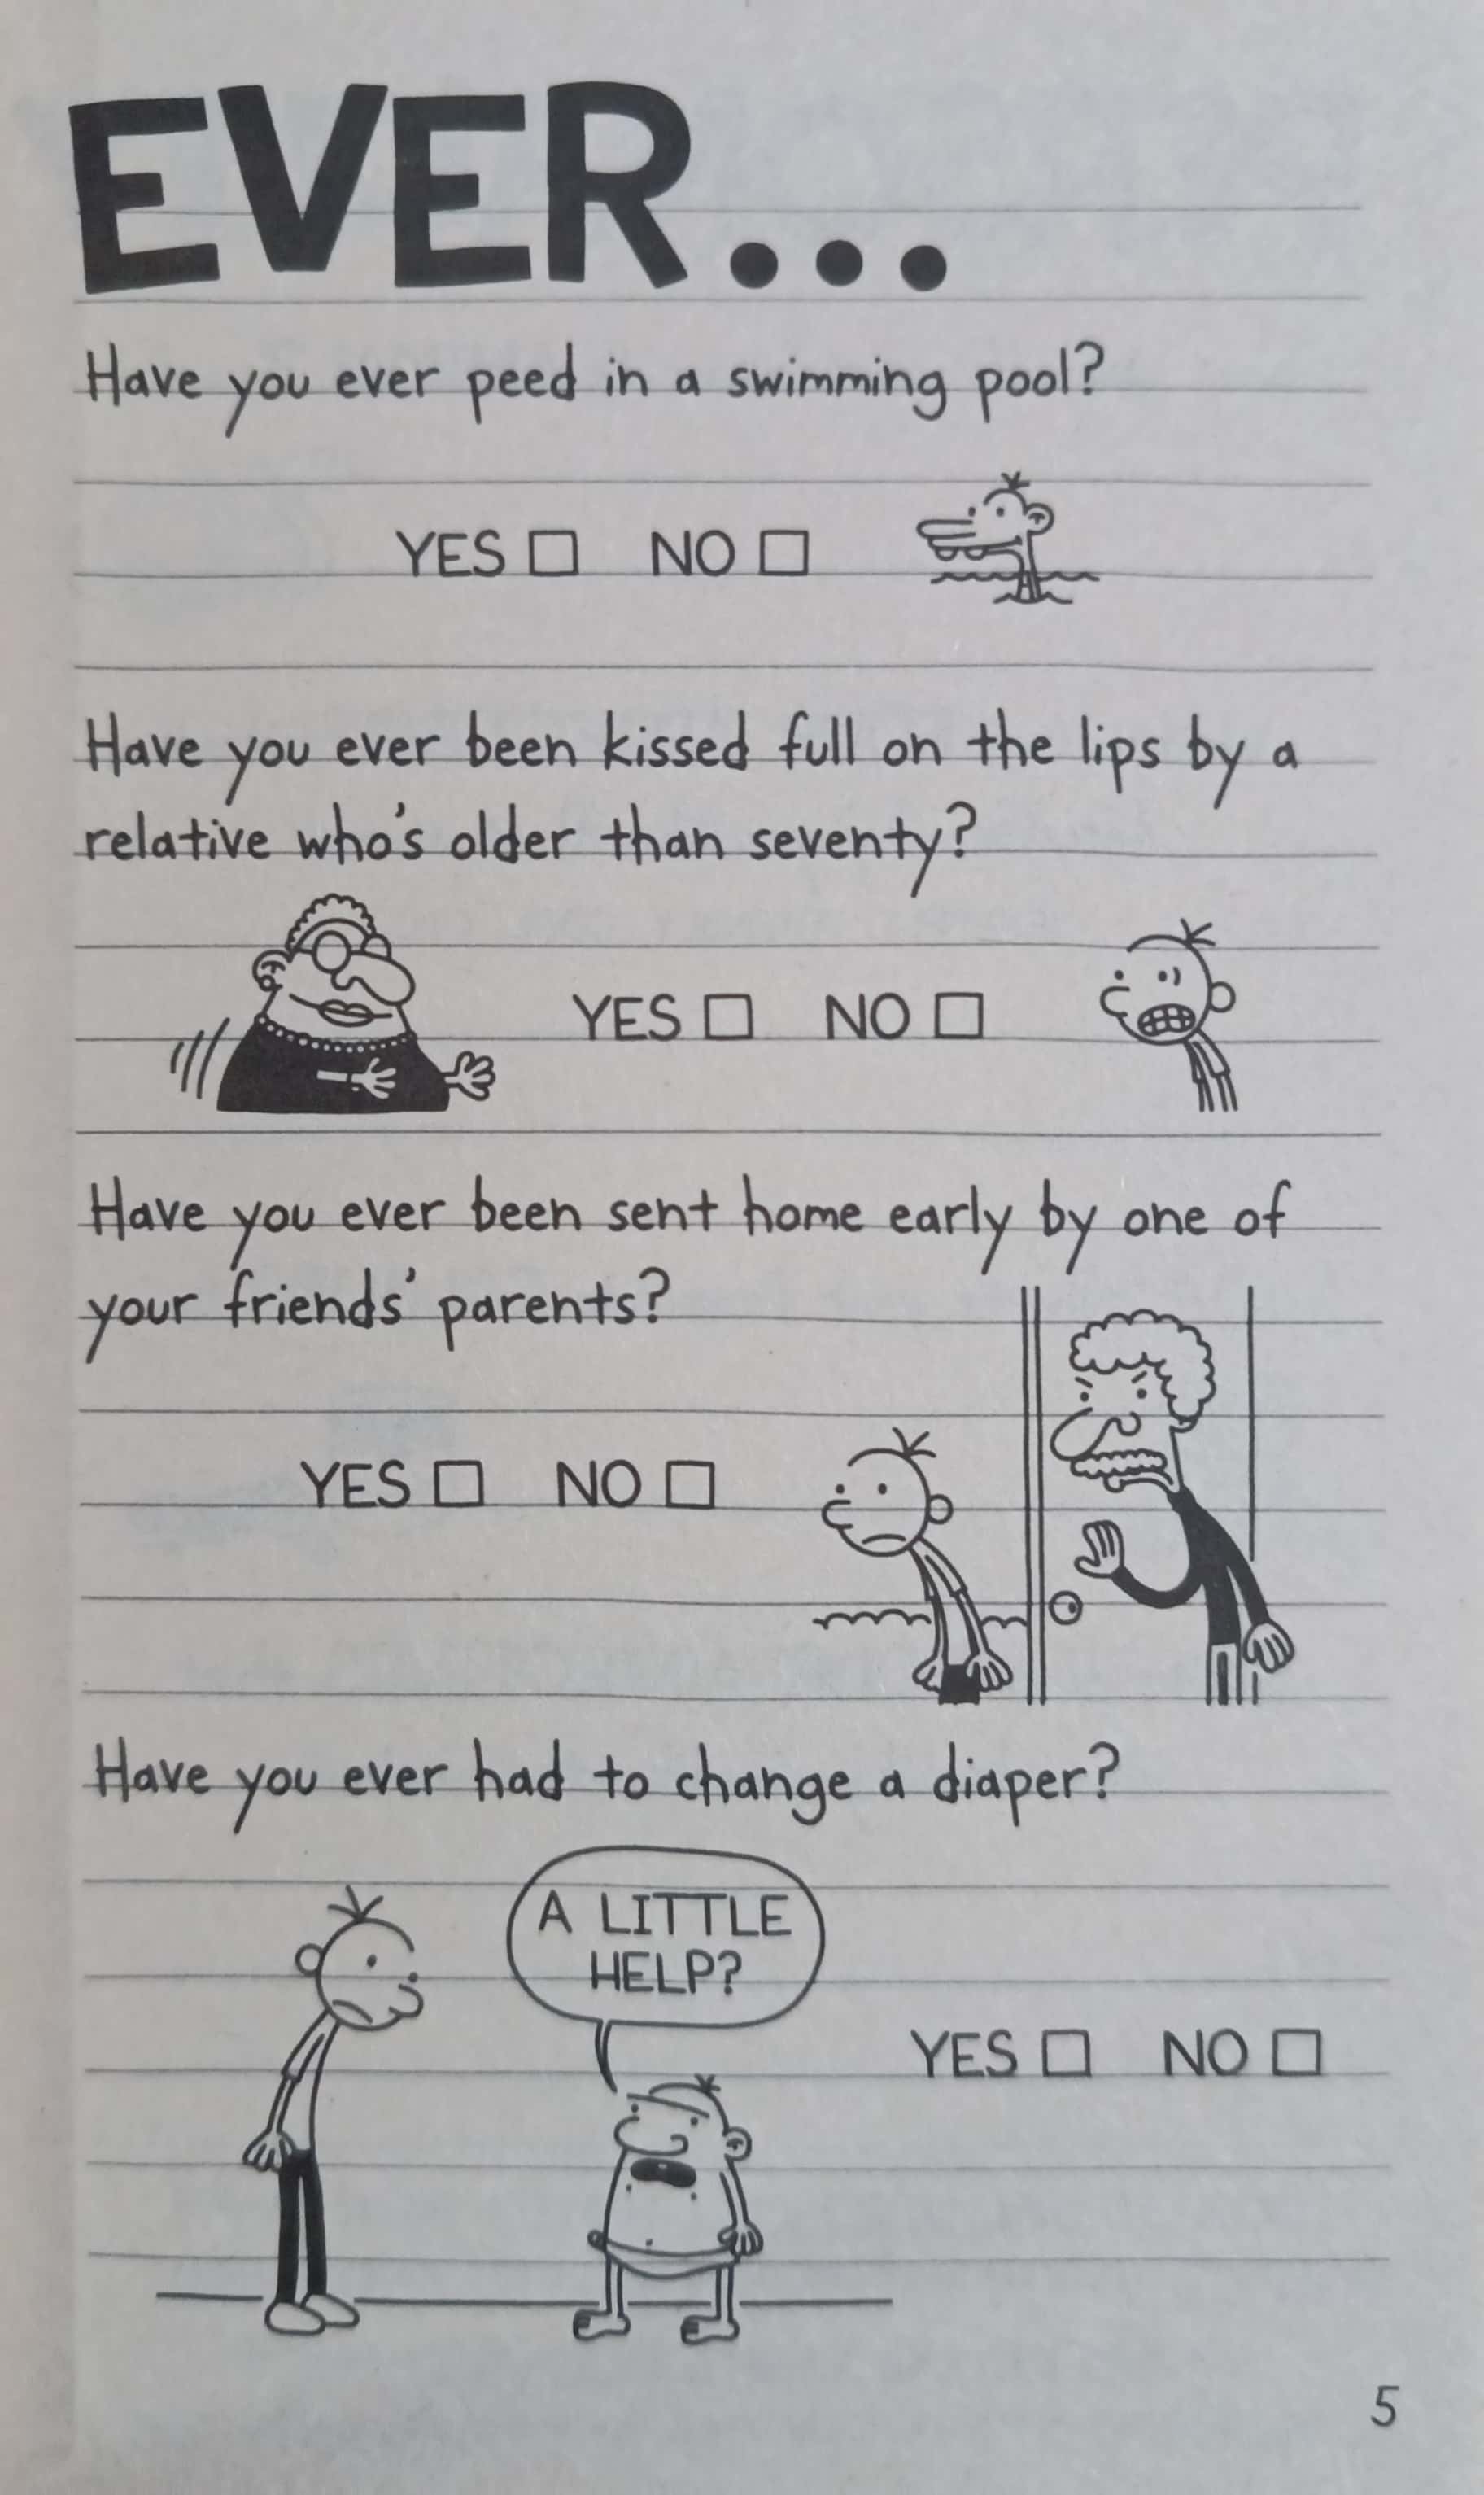 EVER...
Have you ever peed in a swimming pool?
YES NO
Have you ever been kissed full on the lips by a
relative who's older than seventy?
YES NO
Have you ever been sent home early by one of
your friends' parents?
YES NO
Have you ever had to change a diaper?
A LITTLE
HELP?
YES NO
5